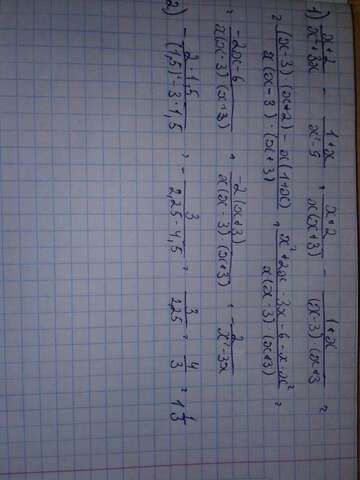 1) (x+2)/(x²+3x) - (1+x)/(x²-9) = (x+2)/(x(x+3)) - (1+x)/((x-3)(x+3) =
= ((x-3)·(x+2) - x(1+x))/(x(x-3)·(x+3)) = (x²+2x-3x-6-x-x²)/(x(x-3)(x+3)) =
= (-2x-6)/(x(x-3)(x+3)) = (-2(x+3))/(x(x-3)(x+3)) = - 2/(x²-3x)
2) - (2·1,5)/((1,5)²-3·1,5) = - 3/(2,25-4,5) = 3/2,25 = 4/3 = 1 1/3